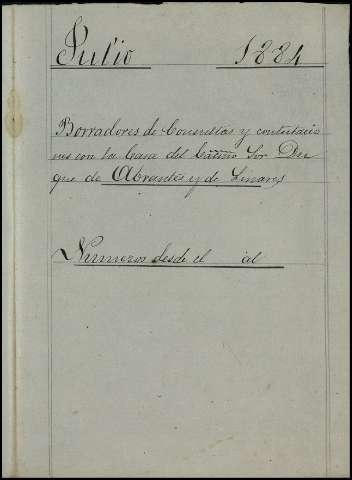 Julio 1884
Borradores de Consultas y contestacio
nes con la Casa del Exmo Sor Du
que de Abrantes y de Linares
Numeros desde el al